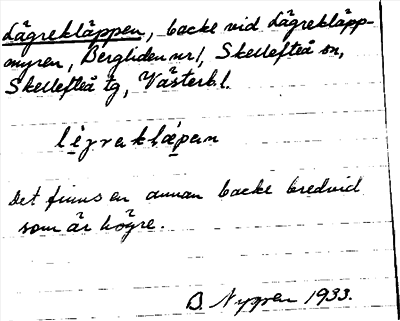 Lägrekläppen, backe vid Lägrekläpp-
myren, Bergliden nr 1, Skellefteå sn,
Skellefteå tg, Västerb l.
Det finns en annan backe bredvid
som är högre.
B. Nyppen 1933.